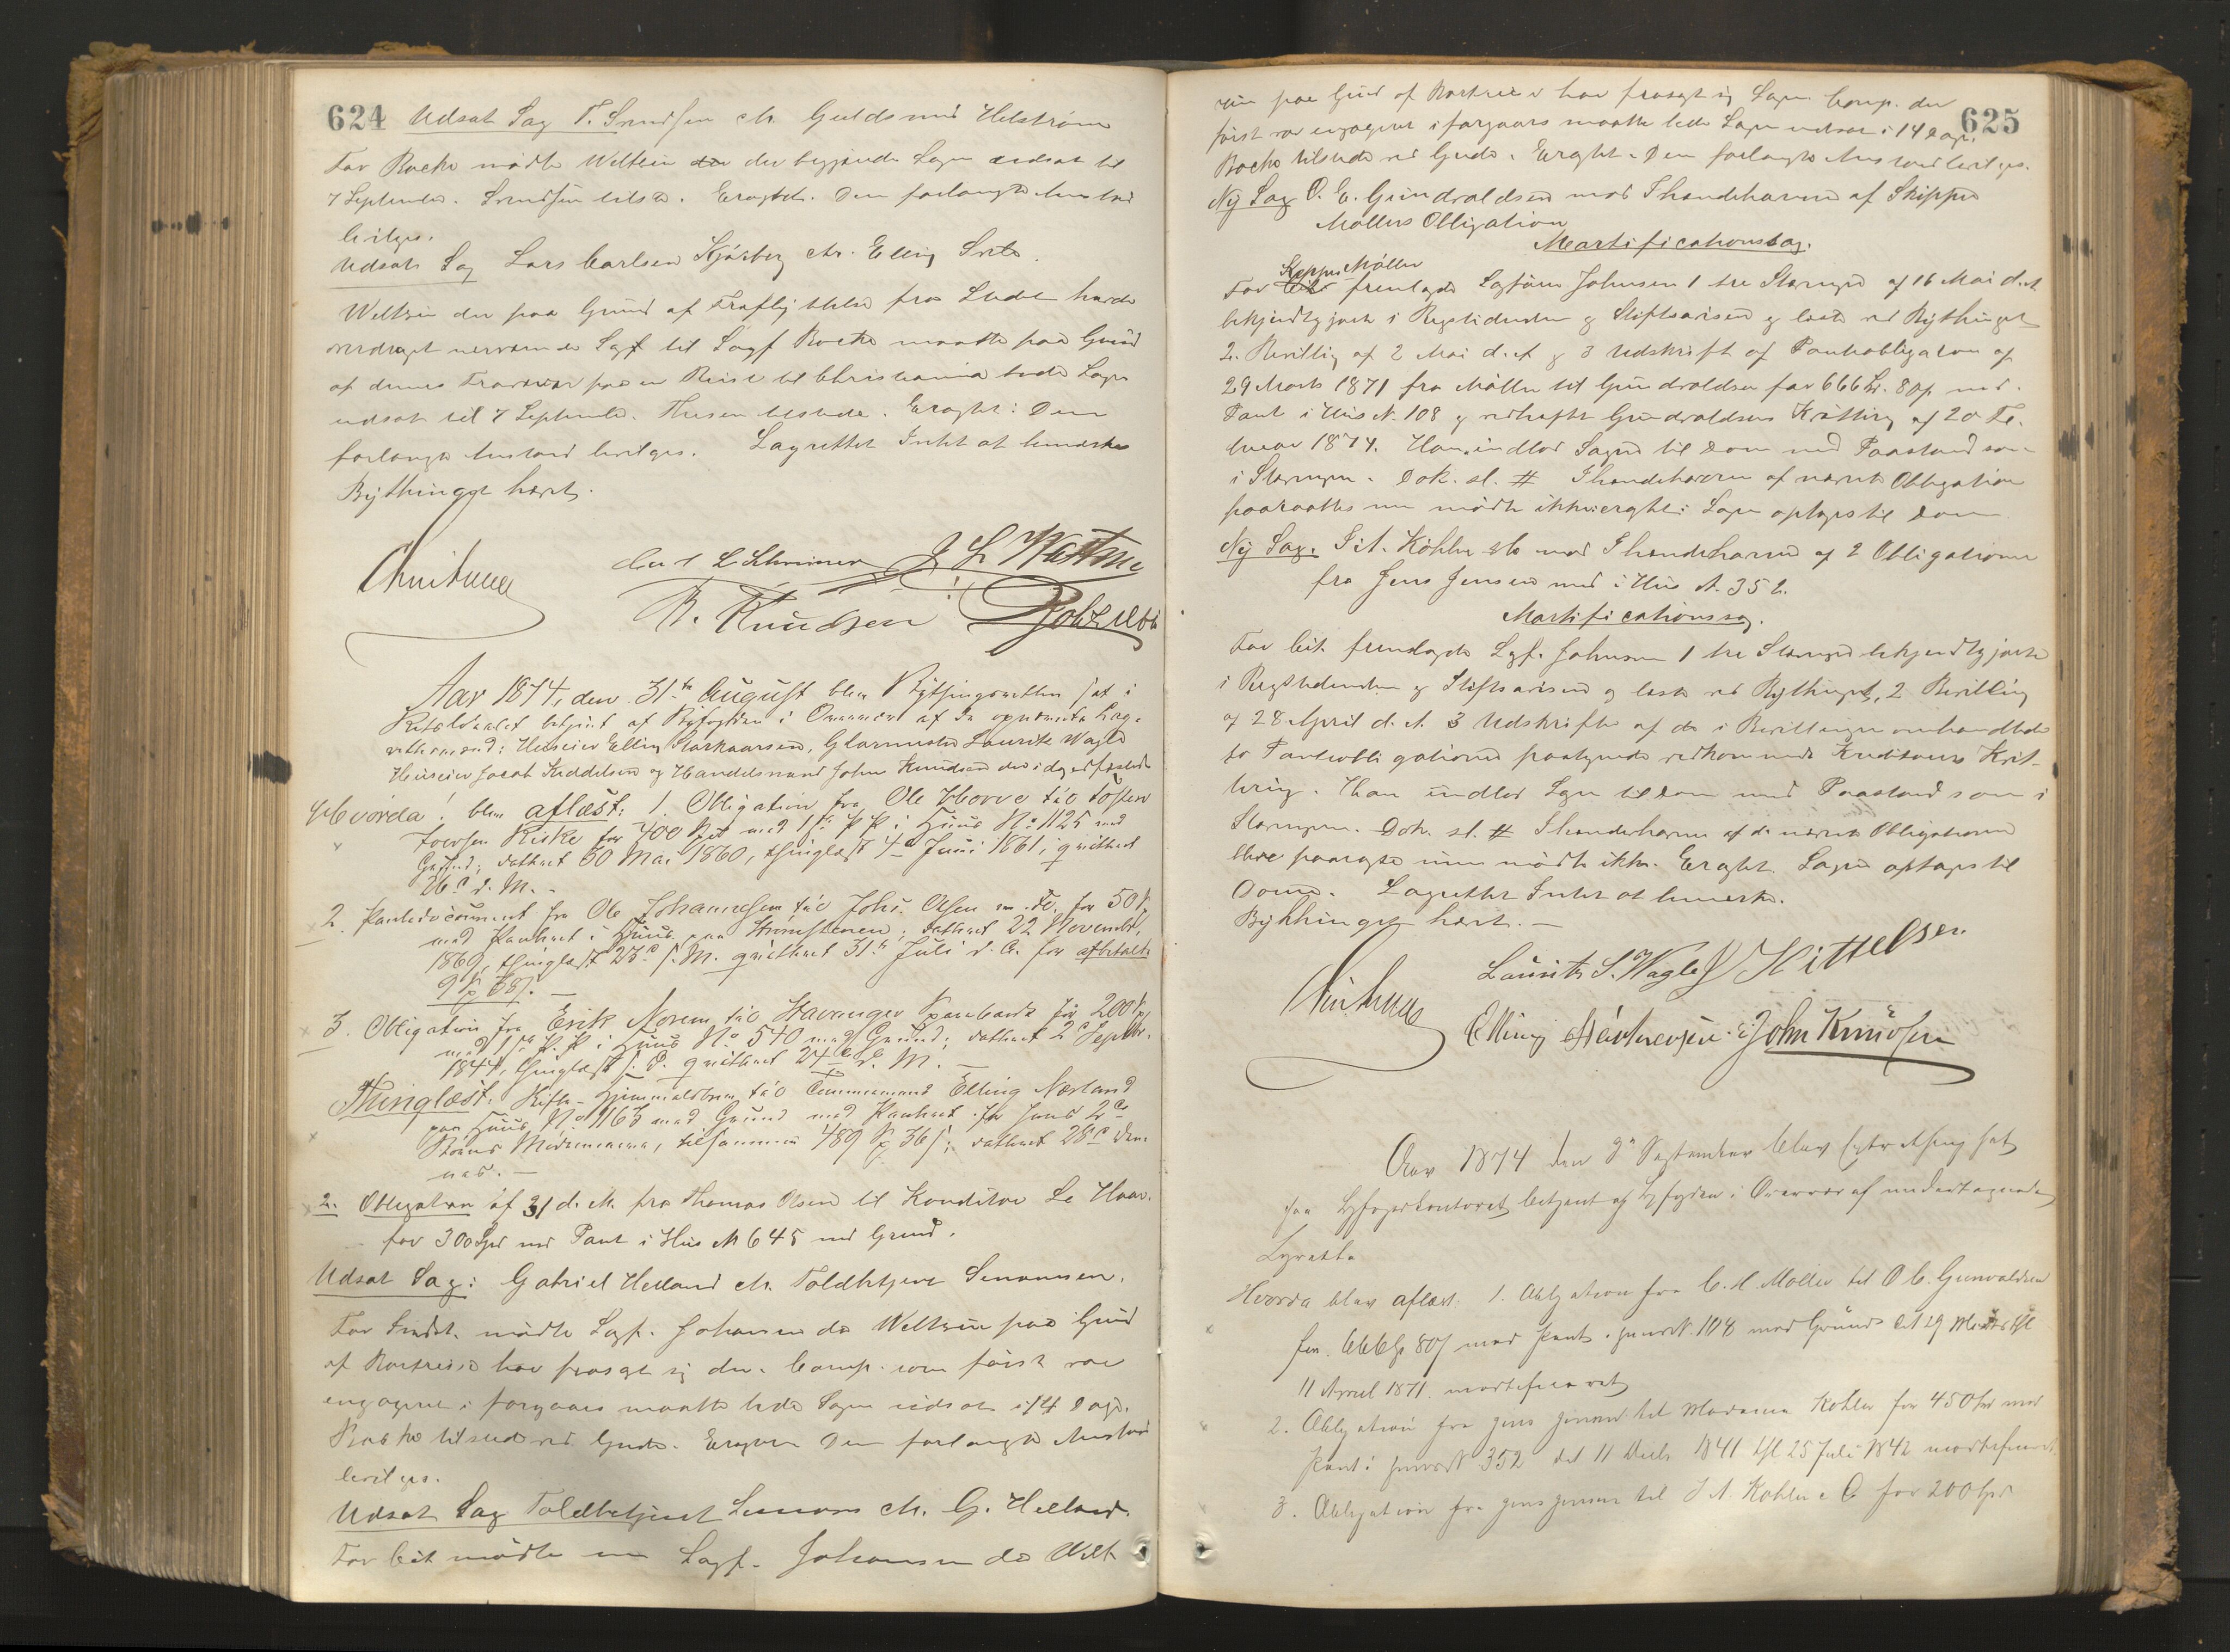 624 Udsat Sag T. Svendsen ctr. Guldsmed Helstrøm
For Racke mødte Weltzin der begjærede Sagen udsat til
7 September. Svendsen tilst. Eragtet. Den forlangte Anstand
bevilges.
Udsat Sag Lars Carlsen Kjosberg ctr. Elling
Weltzin der paa Grund af Fraflyttelse fra Stedet havde
overdraget nærværende Sag til Sagf Racke maatte paa Grund
af dennes Fravær paa en Reise til Christiania bede Sagen
udsat til 7 September. tilstede. Eragtet: Den
forlangte Anstand bevilges. Lagrettet Intet at bemærke
Bythinget hævet.
R. Knudsen
Aar 1874, den 31te August blev Bythingsretten sat i
Retslokalet betjent af Byfogden i Overvær af de opnævnte Lag-
rettesmænd: Huseier Elling Haavarsen, Glarmester Lauritz Wagle
Huseier Jacob Kiddelsen og Handelsmand John Knudsen
Hvorda: blev aflæst: 1. Obligation fra Ole til Tosten
Riske for 400 Spd med 1ste P. P. i Huus No 1125 med
Grund; dateret 30 Mai 1860, thinglæst 4de Juni 1861, qvitteret
26de d. M. -
2. Pantedocument fra Ole Johannesen til Johs. Olsen for 50
med Panteret i Huus paa Strømstenen; dateret 22 November
1869, thinglæst 23de s. M. qvitteret 31te Juli d. A. for afbetalte
9 38
3. Obligation fra Erik Norem til Stavanger Sparebank for 200
med 1ste P. P. i Huus No 540 med Grund; dateret 2de Septbr.
1844, thinglæst s. D. qvitteret 24de d. M. -
Thinglæst: Skifte-Hjemmelsbrev til Tømmermand Elling Nærland
paa Huus No 1163 med Grund med Panteret for
tilsammen 489 36; dateret 28de den-
nes. -
2. Obligation af 31 d. M. fra Thomas Olsen til Konditor
for 300 Spd med Pant i Hus N 645 med Grund.
Udsat Sag: Gabriel Helland ctr. Toldbetjent Simonsen.
For mødte Sagf. Johnsen da Weltzin paa Grund
af Bortreise har frasagt sig den. Comp. som først var
engageret i forgaars maatte bede Sagen udsat i 14 Dage.
Racke tilstede ved Gude. Eragtet Den forlangte Anstand
bevilges.
Udsat Sag Toldbetjent Simons ctr. G. Helland.
For Cit mødte nu Sagf. Johnsen da Welt-
625
zin paa Grund af Bortreise har frasagt sig Sagen. Comp. der
først var engageret i forgaars maatte bede Sagen udsat i 14 Dage.
Racke tilstede ved Gude. Eragtet. Den forlangte Anstand bevilges.
Ny Sag O. E. Gundvaldsen mod Ihændehaveren af Skipper
Møllers Obligation
Mortificationssag.
Skipper Møller
For Cit fremlagde Sagfører Johnsen 1 tre Stævninger af 16 Mai d. A
bekjendtgjort i Rigstidenden og Stiftsavisen og læst ved Bythinget
2. Bevilling af 2 Mai d. A og 3 Udskrift af Panteobligation af
29 Marts 1871 fra Møller til Gundvaldsen for 666 80 med
Pant i Hus N. 108 og vedhæftet Gundvaldsens Kvittering af 20 Fe-
bruar 1874. Han indlod Sagen til Dom med Paastand som
i Stævningen. Dok. sl. # Ihændehaveren af nævnte Obligation
paaraabtes men mødte ikke: eragtet: Sagen optages til Dom
Ny Sag. I. A. Köhler & Co mod Ihændehaveren af 2 Obligationer
fra Jens Jensen med i Hus N. 352.
Mortificationssag.
For Cit. fremlagde Sagf. Johnsen 1 tre Stævninger bekjendtgjort
i Rigstidenden og Stiftsavisen og læst ved Bythinget, 2 Bevilling
af 28 April d. A. 3 Udskrifter af de i Bevillingen omhandlede
to Panteobligationer paategnede vedkommende Kreditors Kvit-
tering. Han indlod Sagen til Dom med Paastand som i
Stævningen. Dok. sl. # Ihændehaveren af de nævnte Obligationer
blev paaraabt men mødte ikke. Eragtet Sagen optages til
Doms. Lagrettet Intet at bemærke.
Bythinget hævet. -
Lauritz S. Wagle J Kittelsen
Elling Haavarsen John Knudsen
Aar 1874 den September blev Extrathing sat
paa Byfogedkontoret betjent af Byfogden i Overvær af undertegnede
Lagrette
Hvorda blev aflæst: 1. Obligation fra C. A Møller til O E. Gunvaldsen
for 666 80 med Pant i Huus N. 108 med Grund dat 29 Marts tgl
11 April 1871. mortificeret
2. Obligation fra Jens Jensen til Madame Kohler for 450 Spd med
Pant i Huus N 352 dat 11 Decbr 1841 tgl 25 Juli 1842 mortificeret.
3. Obligation fra Jens Jensen til I A. Kohler & Co for 200 Spd